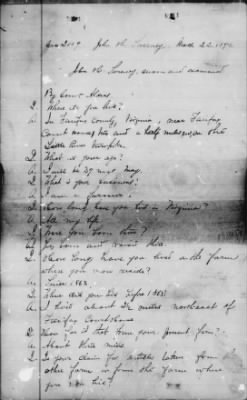 John H. March 22, 187
John H. sworn and examined
By Com'r
Q. Where do you live?
A. In Fairfax County, Virginia, near Fairfax
Court House, two and a half miles, on the
Little River Turnpike.
Q. What is your age?
A. I will be 37 next May.
Q. What is your business?
A. I am a farmer.
Q. How long have you lived in Virginia?
A. All my life.
Q. Were you born here?
A. Yes, born and raised here.
Q. How long have you lived on the farm
where you now reside?
A. Since 1863.
Q. Where did you live before 1863?
A. I lived about miles northeast of
Fairfax Court House
Q. How far is that from your present farm?
A. About three miles
Q. Is your claim for articles taken from the
other farm or from the farm where
you now live?